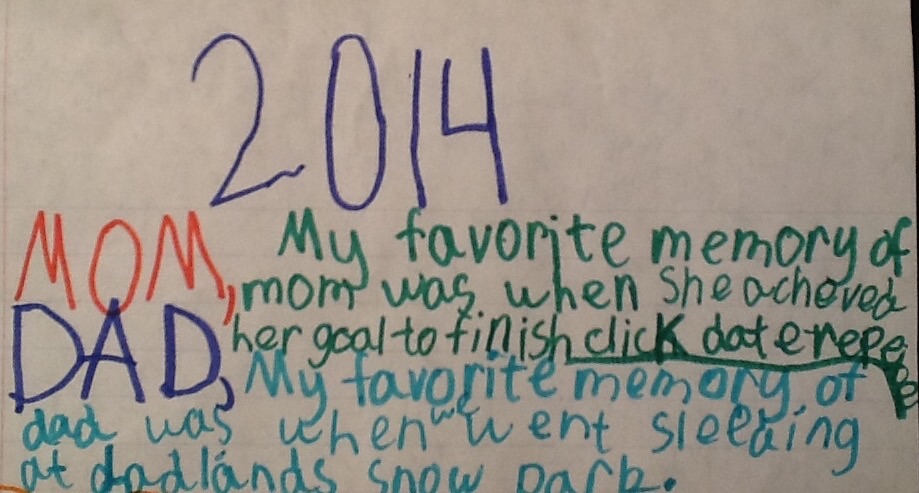 2014
MOM, My favorite memory of
mom was when she acheved
her goal to finish click date repe
DAD, My favorite memory of
dad was when we went sledding
at dadlands snow park.